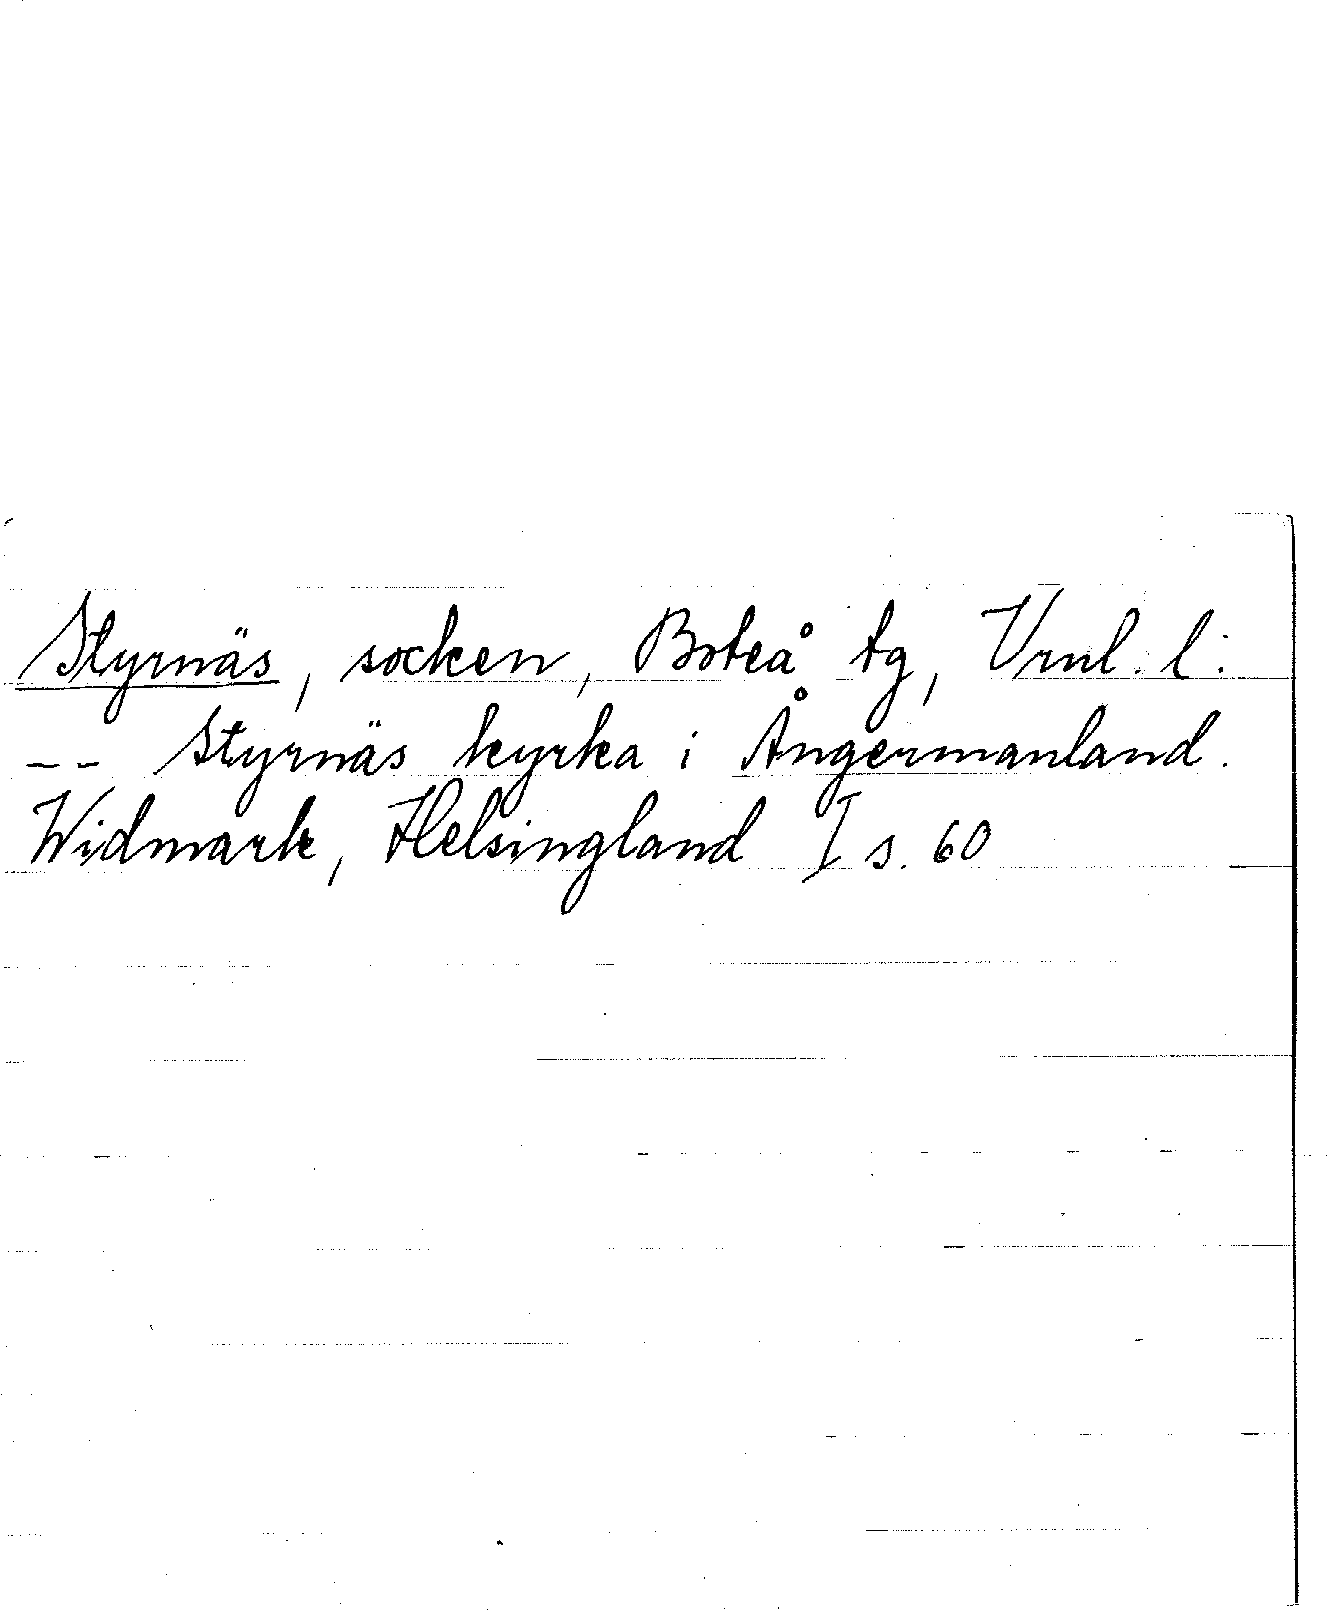 Styrnäs, socken, Boteå tg, Vrnl. l:
-- Styrnäs kyrka i Ångermanland.
Widmark, Helsingland I s. 60